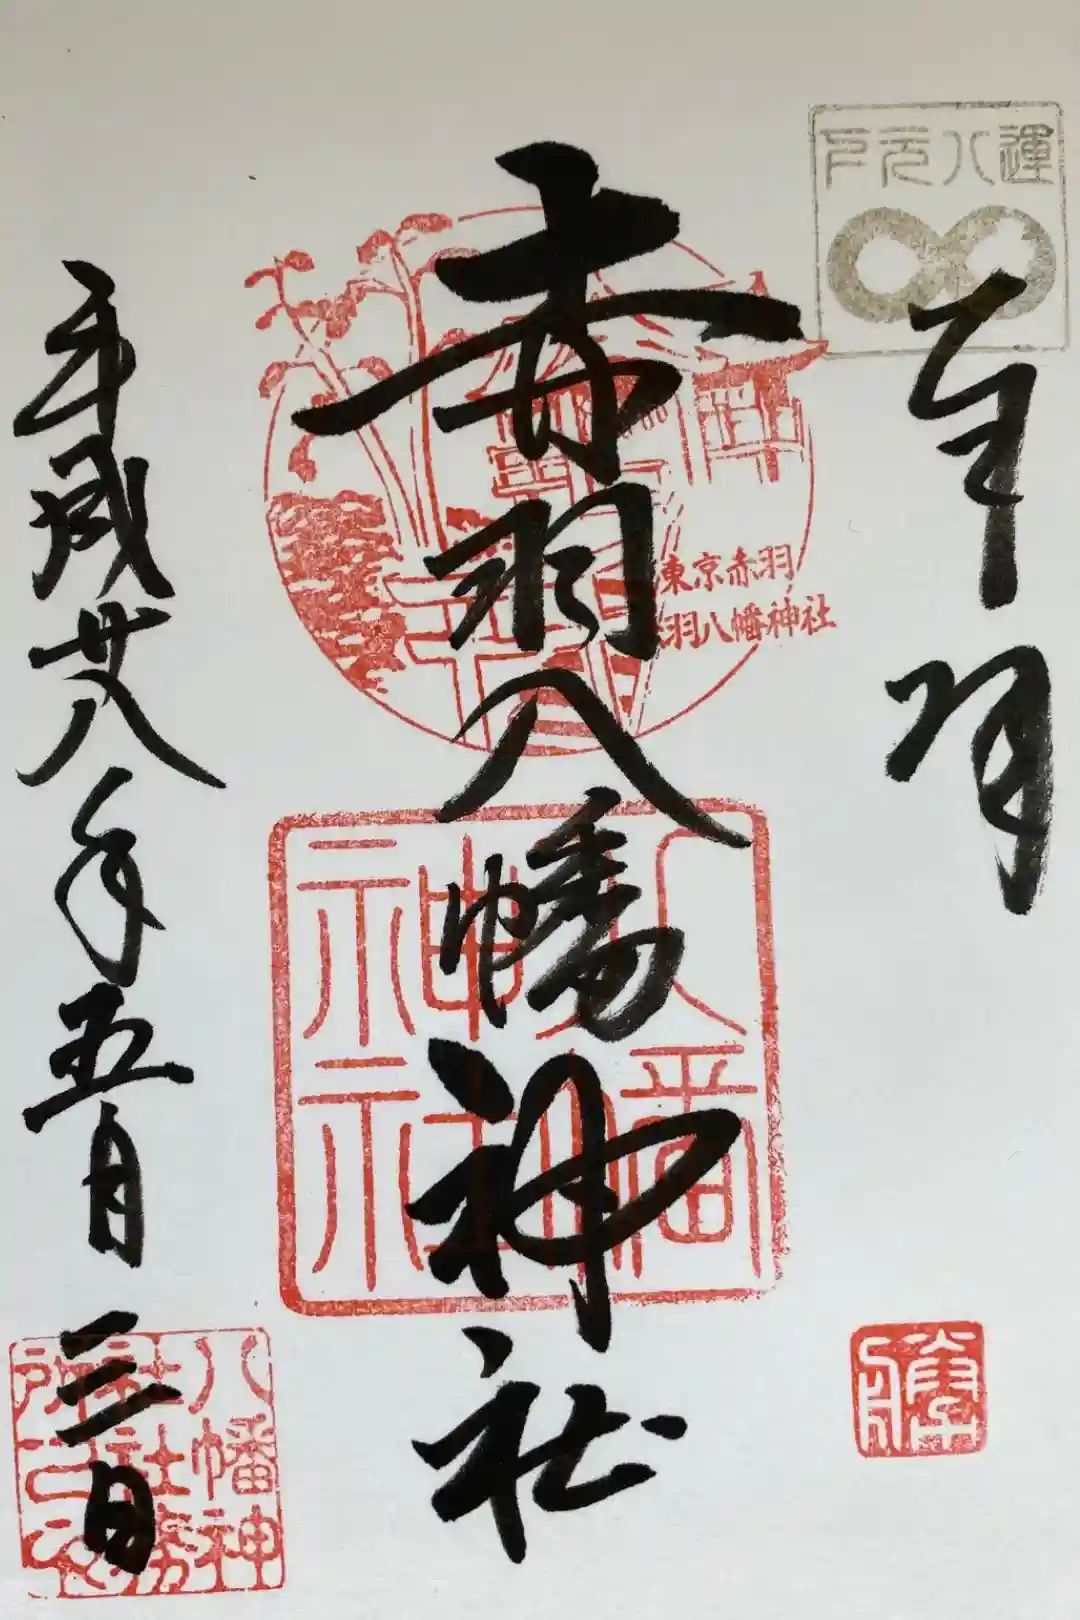 奉拝
赤羽八幡神社
平成廿八年五月三日
東京赤羽
羽八幡神社
八幡
神社
八幡神
社社務